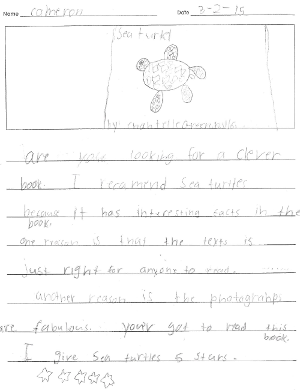 Name cameron Date 3-2-15
Sea turtles
by
are you looking for a clever
book. I recomend Sea turtles
because it has interesting facts in the
book.
one reason is that the texts is
just right for anyone to read.
another reason is the photographs
are fabulous. your got to read this
book.
I give Sea turtles 5 stars.